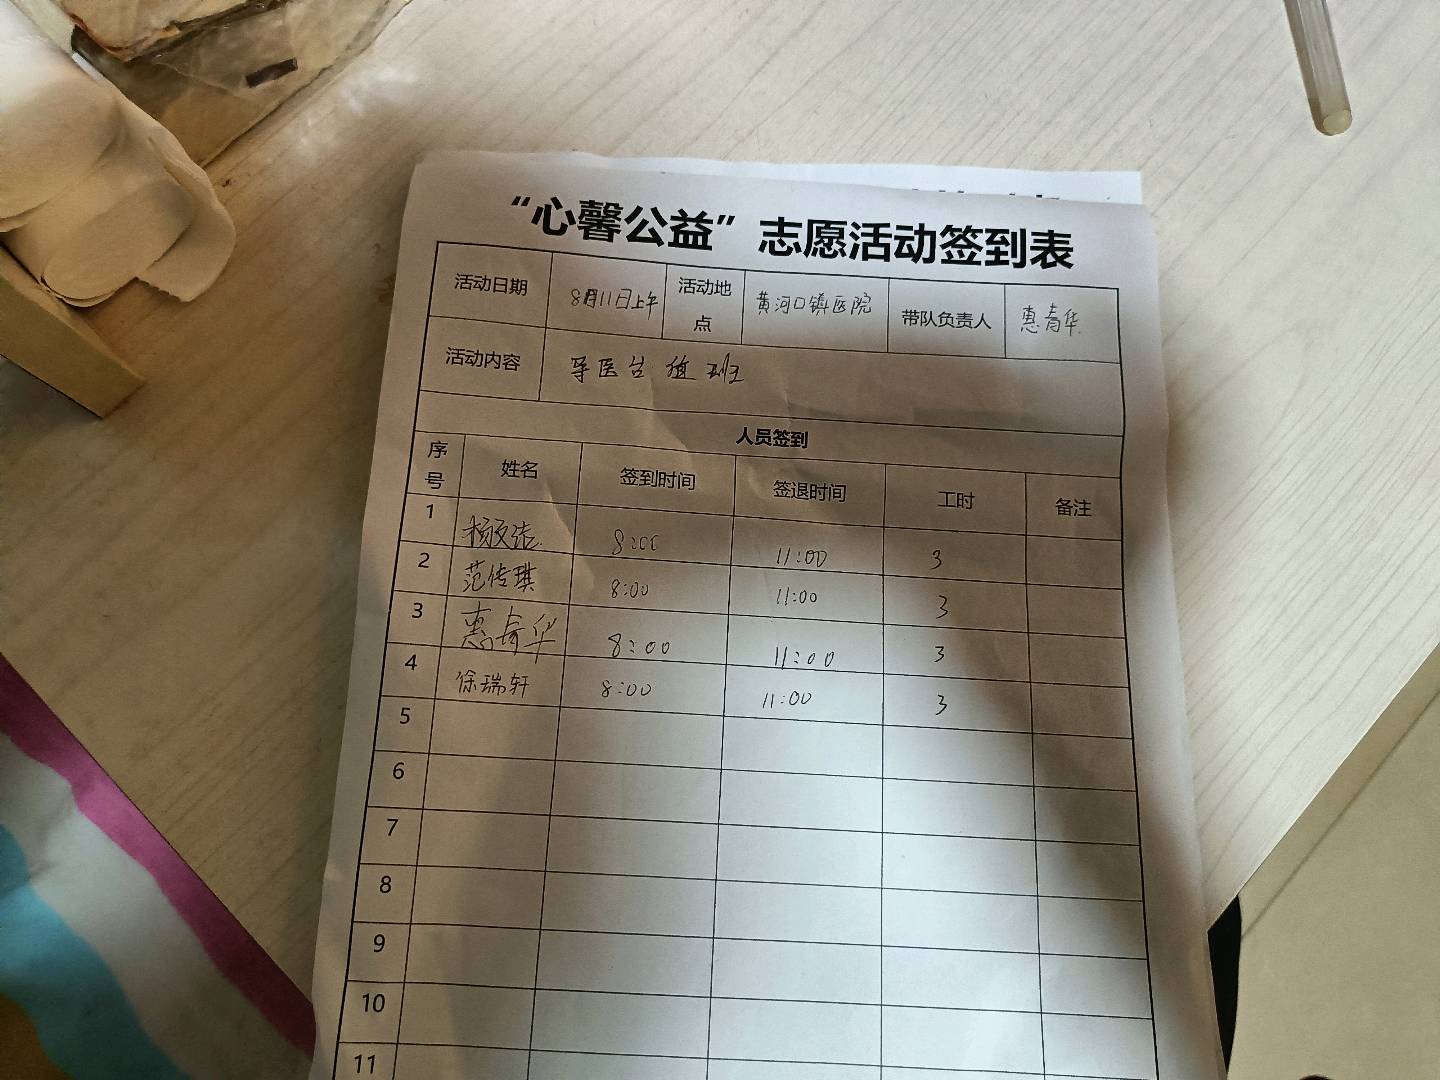 “心馨公益”志愿活动签到表
活动日期 8月11日上午 活动地点 黄河口镇医院 带队负责人 惠青华
活动内容 导医台值班
人员签到
序号 姓名 签到时间 签退时间 工时 备注
1 8:00 11:00 3
2 范传琪 8:00 11:00 3
3 惠青华 8:00 11:00 3
4 徐瑞轩 8:00 11:00 3
5
6
7
8
9
10
11